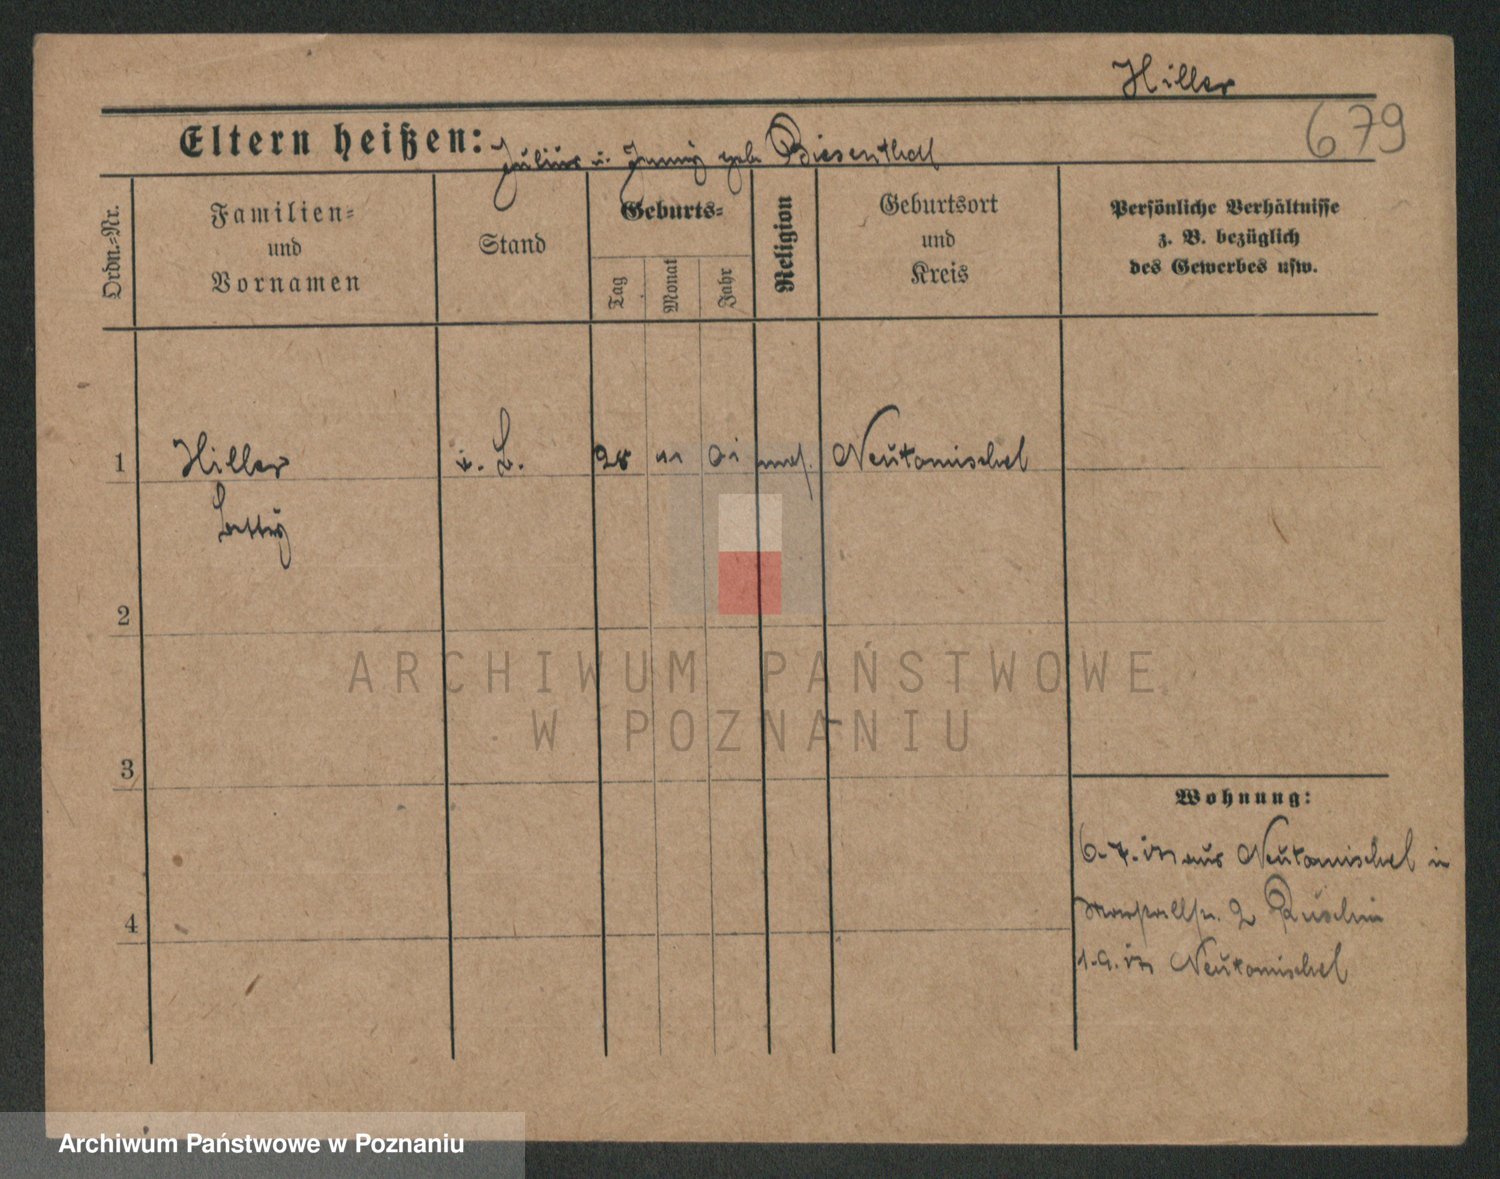 Hiller
679
Eltern heißen: Julius u. Jenny geb. Biesenthal
Ordn.=Nr.
Familien=
und
Vornamen
Stand
Geburts=
Tag
Monat
Jahr
Religion
Geburtsort
und
Kreis
Persönliche Verhältnisse
z. B. bezüglich
des Gewerbes usw.
1 Hiller 11 01 Neutomischel
Betty
2
3
4
Wohnung:
6.7. aus Neutomischel in
2
Neutomischel
ARCHIWUM PAŃSTWOWE
W POZNANIU
Archiwum Państwowe w Poznaniu